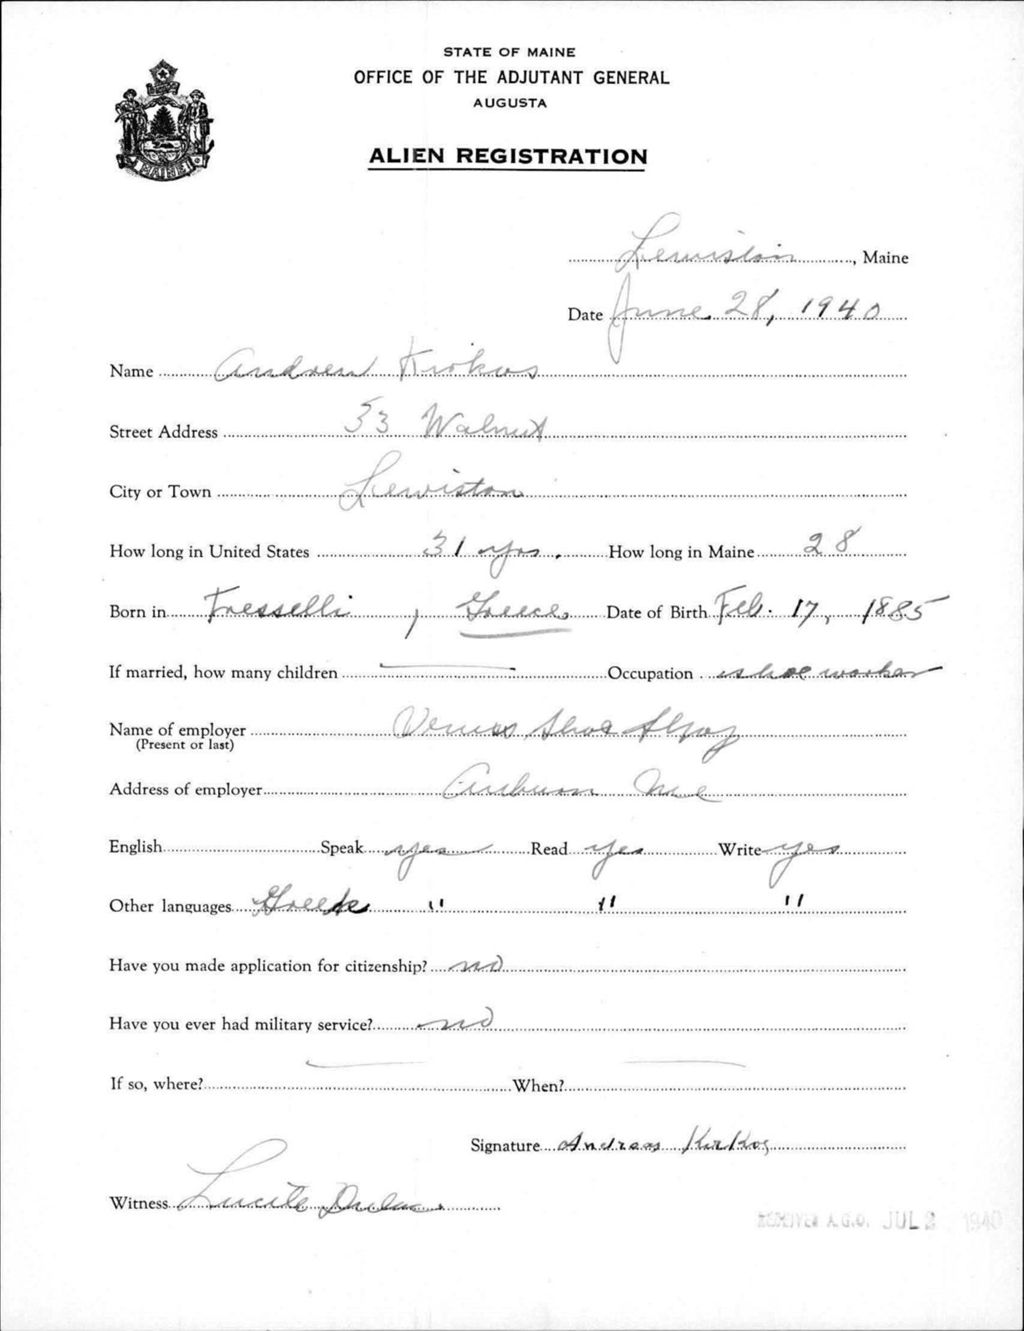 STATE OF MAINE
OFFICE OF THE ADJUTANT GENERAL
AUGUSTA
MAINE
ALIEN REGISTRATION
Lewiston, Maine
Date June 28, 1940
Name Andrew Krokos
Street Address 53 Walnut
City or Town Lewiston
How long in United States 31 yrs. How long in Maine 28
Born in Tresselli, Greece Date of Birth Feb. 17, 1885
If married, how many children — Occupation shoe worker
Name of employer Venus Shoe
(Present or last)
Address of employer Auburn Me
English Speak yes Read yes Write yes
Other languages Greek " " "
Have you made application for citizenship? no
Have you ever had military service? no
If so, where? — When? —
Signature Andreas KirKos
Witness Lucile Dulac
RECEIVED A.G.O. JUL 2 1940